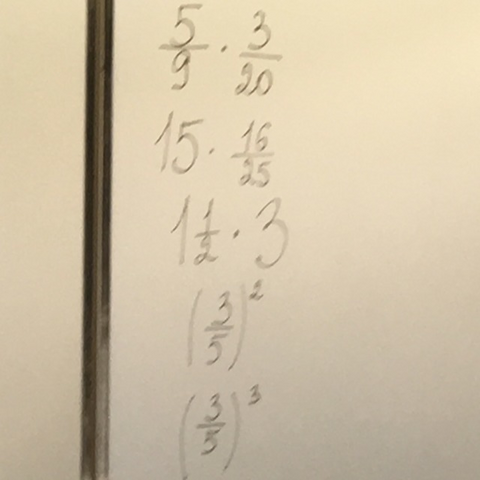 5/9 · 3/20
15 · 16/25
1 1/2 · 3
(3/5)²
(3/5)³